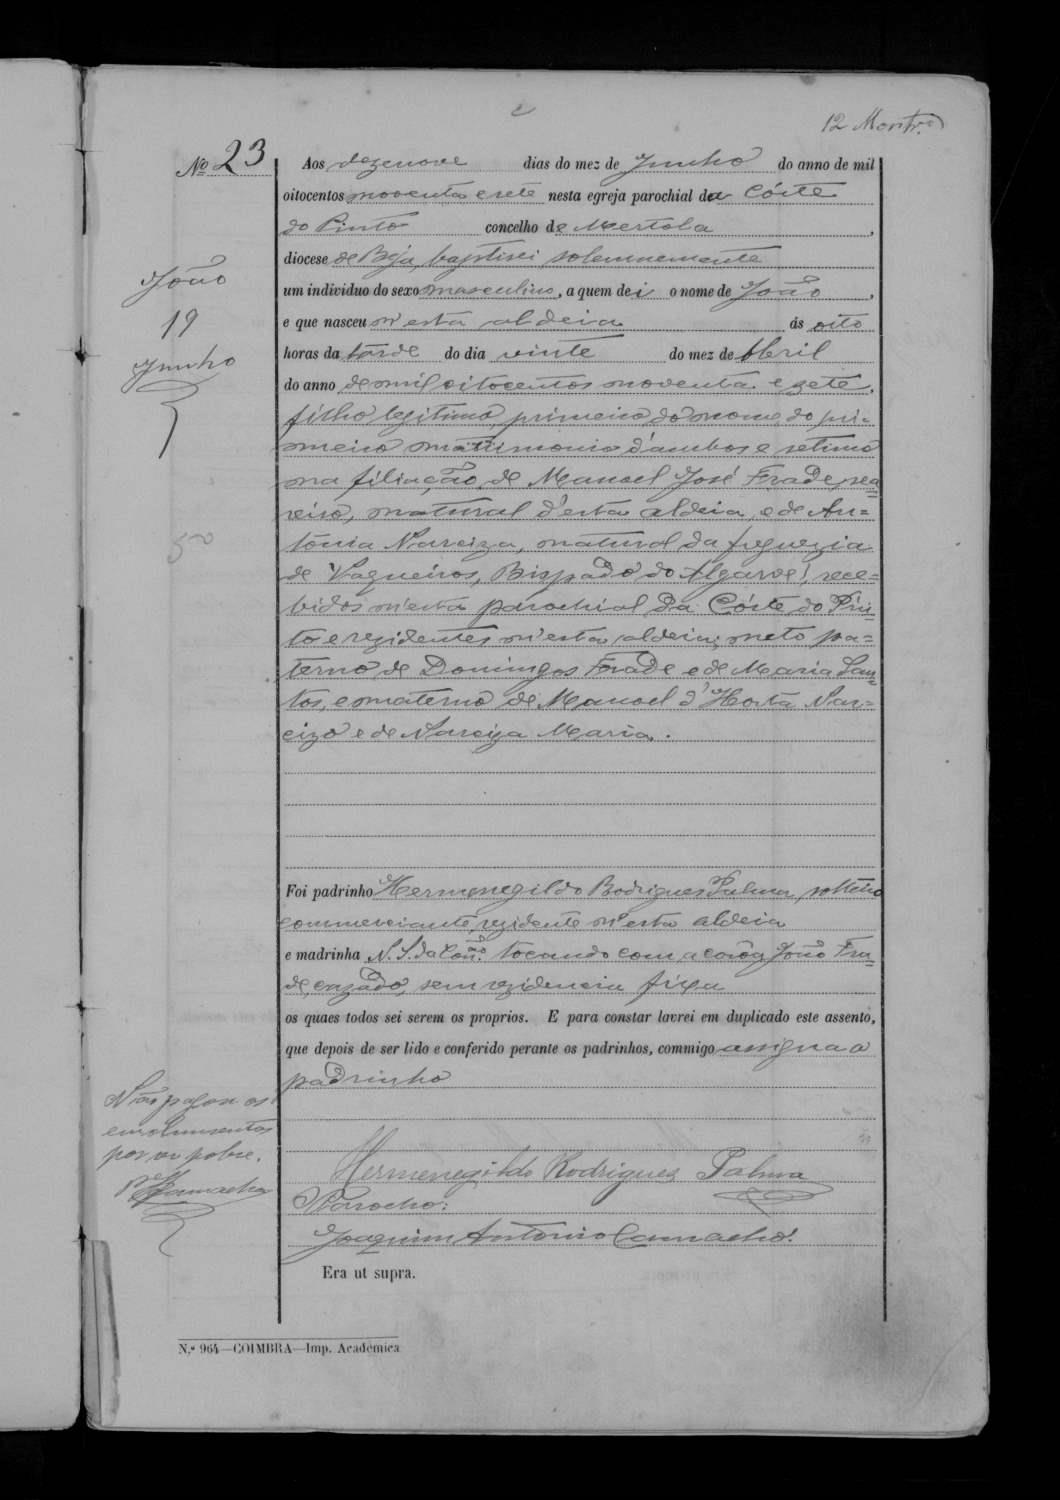 12 Montr.º
Nº 23
Aos dezenove dias do mez de Junho do anno de mil
oitocentos noventa e sete nesta egreja parochial da Côrte
do Pinto concelho de Mertola,
diocese de Beja, baptisei solemnemente
um individuo do sexo masculino, a quem dei o nome de João,
e que nasceu n'esta aldeia ás oito
horas da tarde do dia vinte do mez de Abril
do anno de mil oitocentos noventa e sete,
filho legitimo, primeiro do nome, do pri-
meiro matrimonio d'ambos e setimo
na filiação, de Manoel José Frade, sea-
reiro, natural d'esta aldeia, e de An-
tonia Narciza, natural da freguezia
de Vaqueiros, Bispado do Algarve, rece-
bidos n'esta parochial da Côrte do Pin-
to e rezidentes n'esta aldeia; neto pa-
terno de Domingos Frade e de Maria San-
tos, e materno de Manoel d'Horta Nar-
cizo e de Narciza Maria.
Foi padrinho Hermenegildo Rodrigues Palma, solteiro
commerciante, rezidente n'esta aldeia
e madrinha N. S. da Conc.ão tocando com a corôa João Fra-
de, cazado, sem rezidencia fixa
os quaes todos sei serem os proprios. E para constar lavrei em duplicado este assento,
que depois de ser lido e conferido perante os padrinhos, commigo assigna o
padrinho
Hermenegildo Rodrigues Palma
O Parocho:
Joaquim Antonio Camacho.
Era ut supra.
João
19
Junho
Não pagou os
emolumentos
por ser pobre.
P.e Camacho
N.º 964—COIMBRA—Imp. Académica